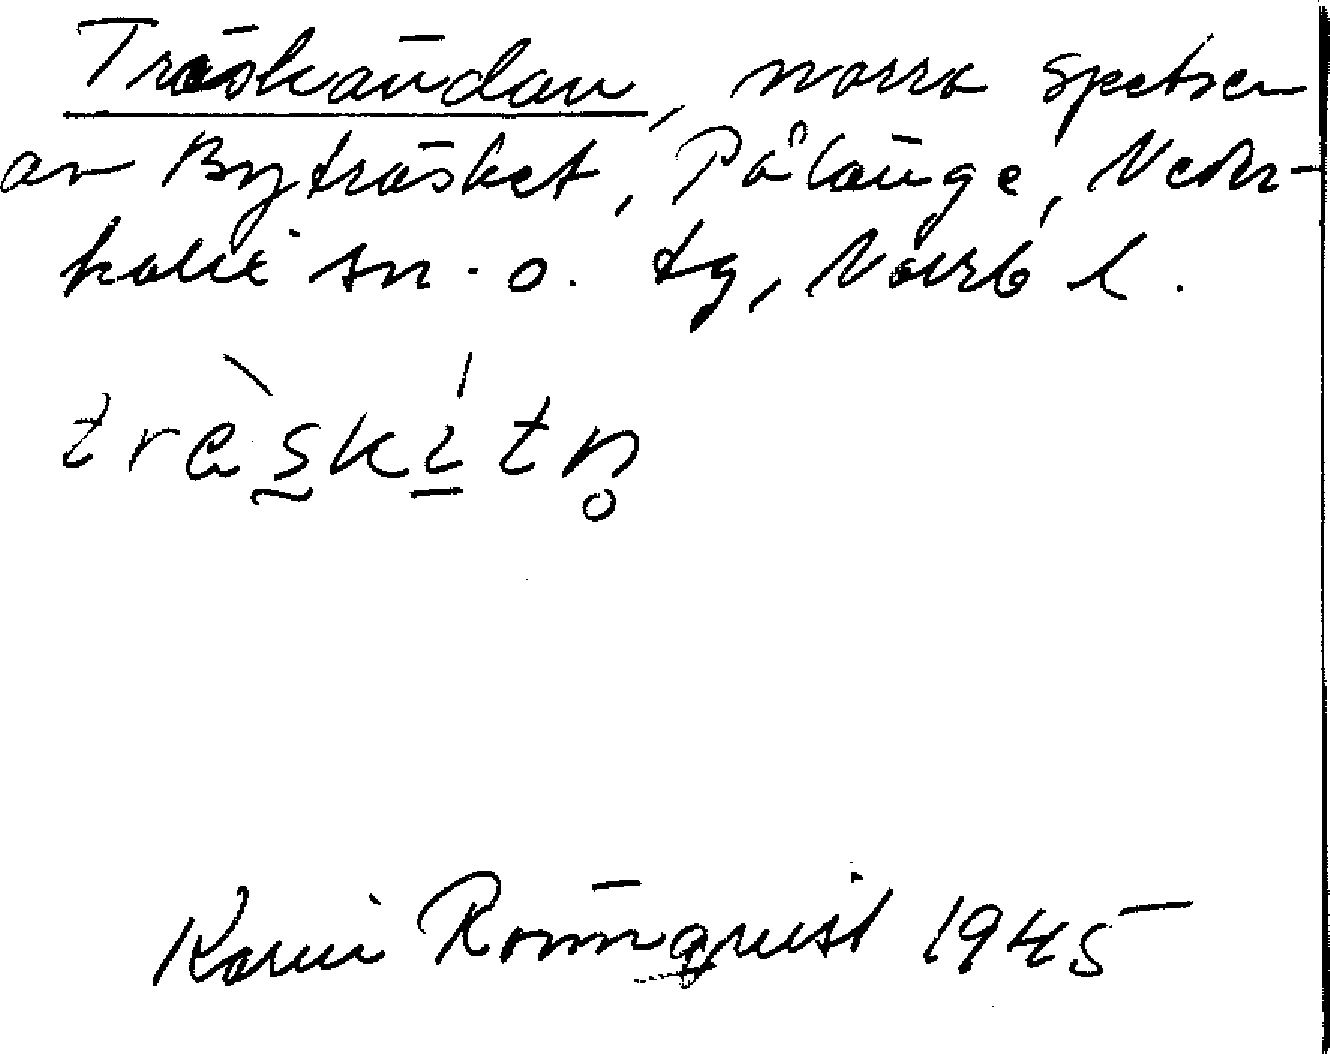 Träskändan, norra spetsen
av Byträsket, Pålänge, Neder-
kalix sn. o. tg, Norrb l.
träskit n̥
Karin Rönnqvist 1945